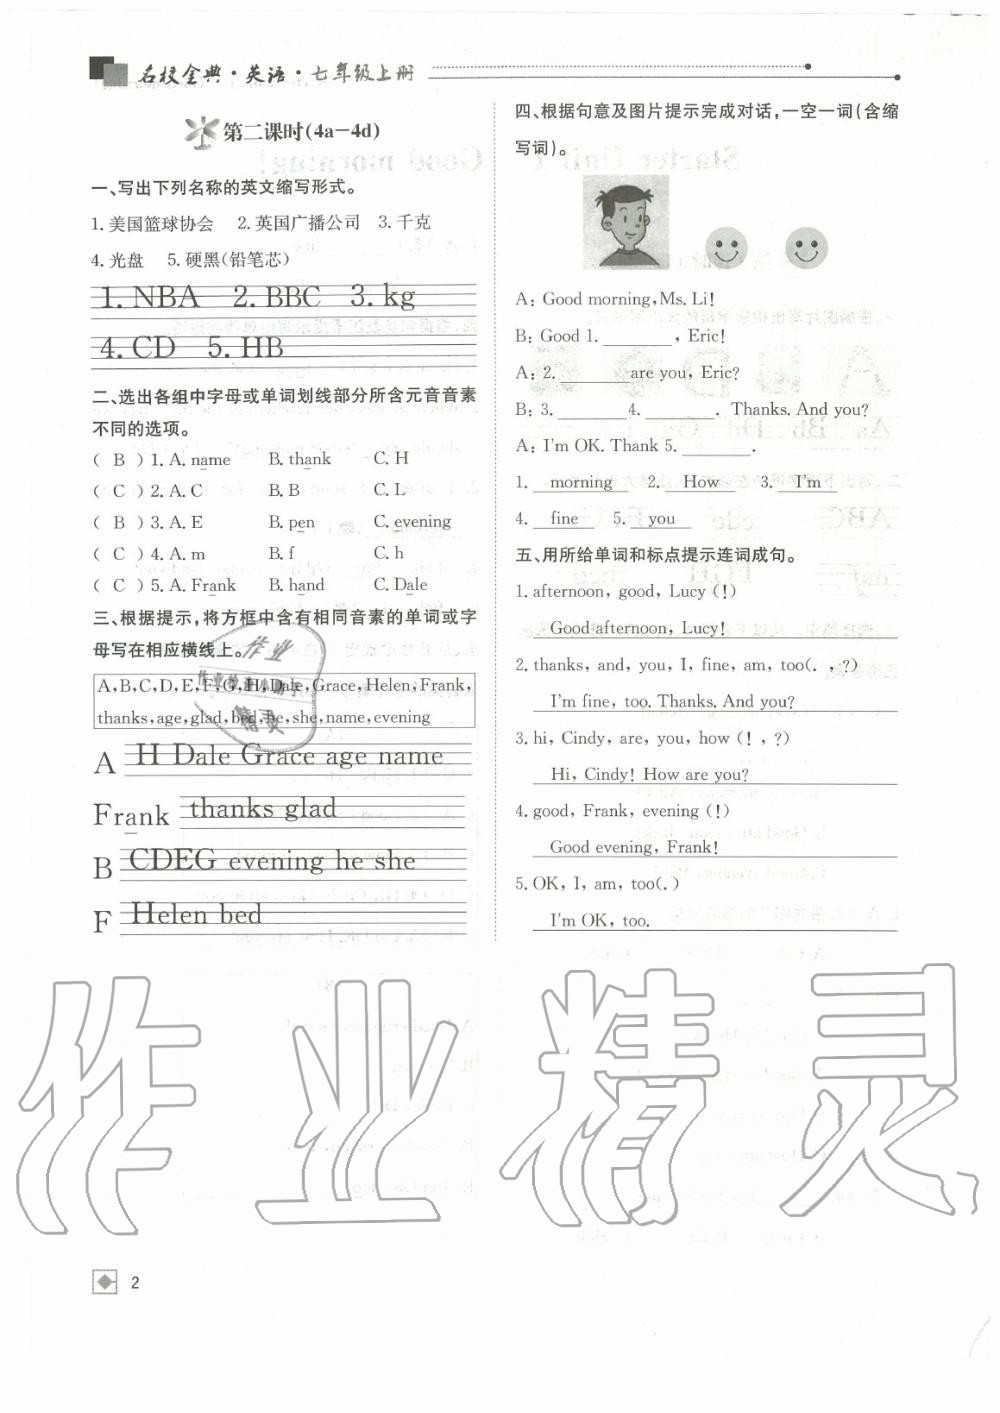 名校金典·英语·七年级上册
第二课时(4a-4d)
一、写出下列名称的英文缩写形式。
1. 美国篮球协会 2. 英国广播公司 3. 千克
4. 光盘 5. 硬黑(铅笔芯)
1. NBA 2. BBC 3. kg
4. CD 5. HB
二、选出各组中字母或单词划线部分所含元音音素
不同的选项。
( B ) 1. A. name B. thank C. H
( C ) 2. A. C B. B C. L
( B ) 3. A. E B. pen C. evening
( C ) 4. A. m B. f C. h
( C ) 5. A. Frank B. hand C. Dale
三、根据提示,将方框中含有相同音素的单词或字
母写在相应横线上。
A,B,C,D,E,F,G,H,Dale,Grace,Helen,Frank,
thanks,age,glad,bed,he,she,name,evening
A H Dale Grace age name
Frank thanks glad
B CDEG evening he she
F Helen bed
四、根据句意及图片提示完成对话,一空一词(含缩
写词)。
A: Good morning, Ms. Li!
B: Good 1. ________, Eric!
A: 2. ________ are you, Eric?
B: 3. ________ 4. ________. Thanks. And you?
A: I'm OK. Thank 5. ________.
1. morning 2. How 3. I'm
4. fine 5. you
五、用所给单词和标点提示连词成句。
1. afternoon, good, Lucy (!)
Good afternoon, Lucy!
2. thanks, and, you, I, fine, am, too(. ,?)
I'm fine, too. Thanks. And you?
3. hi, Cindy, are, you, how (! ,?)
Hi, Cindy! How are you?
4. good, Frank, evening (!)
Good evening, Frank!
5. OK, I, am, too(.)
I'm OK, too.
作业精灵
2